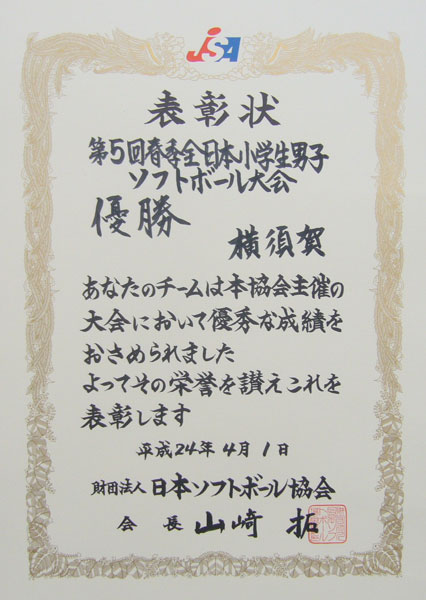 JSA
表彰状
第5回春季全日本小学生男子
ソフトボール大会
優勝
横須賀
あなたのチームは本協会主催の
大会において優秀な成績を
おさめられました
よってその栄誉を讃えこれを
表彰します
平成24年4月1日
財団法人 日本ソフトボール協会
会長 山崎 拓